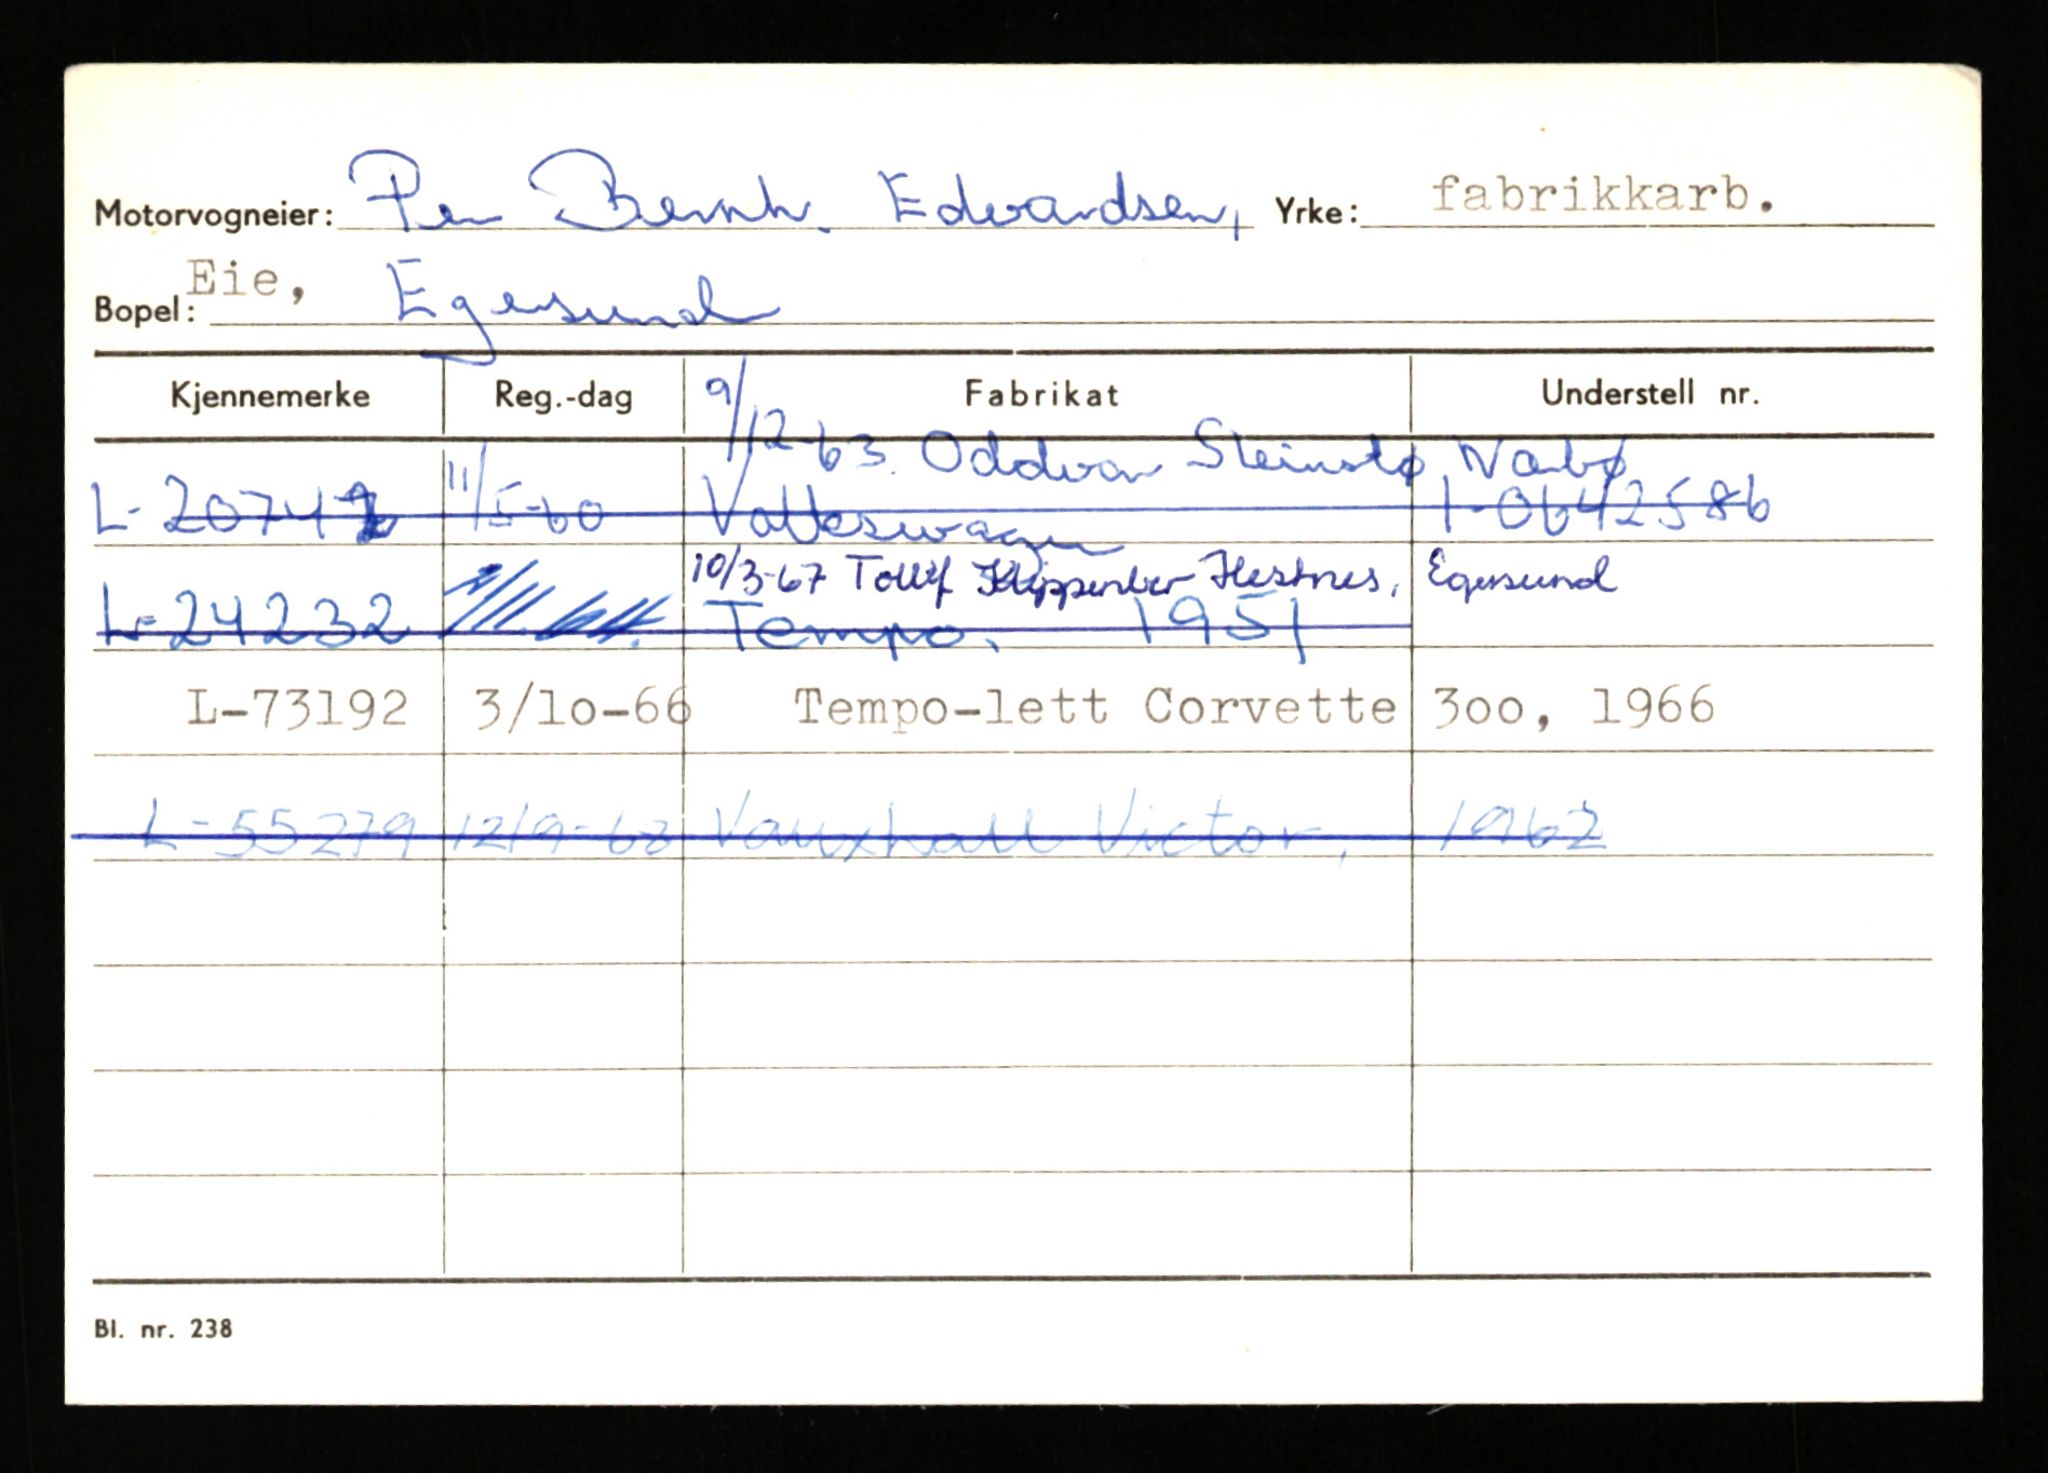 Motorvogneier: Per Bernh. Edvardsen, Yrke: fabrikkarb.
Bopel: Eie, Egersund
Kjennemerke Reg.-dag Fabrikat Understell nr.
9/12-63. Oddvar Steinstø Nærbø
L-20742 11/5-60 Volkswagen 1-0642586
10/3-67 Hestnes, Egersund
L-24232 Tempo. 1951
L-73192 3/10-66 Tempo-lett Corvette 300, 1966
L-55279 12/9-68 Vauxhall Victor, 1962
Bl. nr. 238